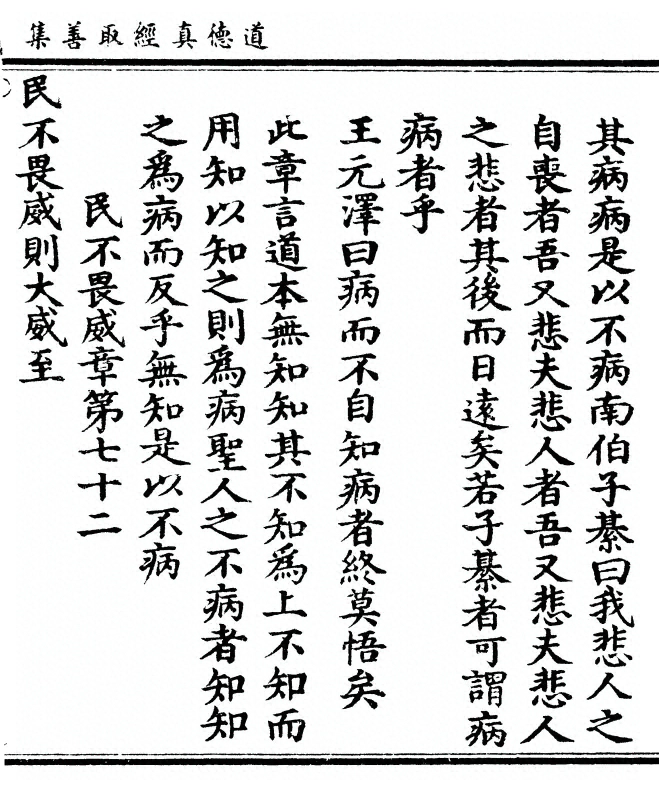 道德真經取善集
其病病是以不病南伯子綦曰我悲人之
自喪者吾又悲夫悲人者吾又悲夫悲人
之悲者其後而日遠矣若子綦者可謂病
病者乎
王元澤曰病而不自知病者終莫悟矣
此章言道本無知知其不知爲上不知而
用知以知之則爲病聖人之不病者知知
之爲病而反乎無知是以不病
民不畏威章第七十二
民不畏威則大威至